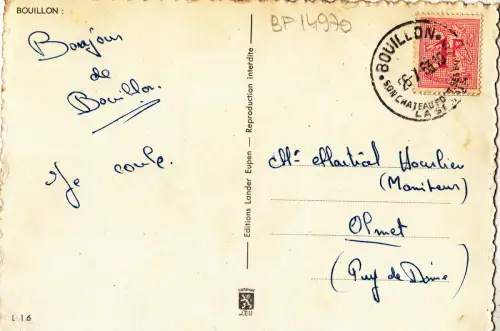 BOUILLON :
BP 14970
Bonjour
de
Bouillon.
Je
Editions Lander Eupen — Reproduction interdite —
BOUILLON
SON CHATEAU
LA SEMOIS
1F
Mr Martial
(Moniteur)
Olmet
(Puy de Dôme)
L 1 6